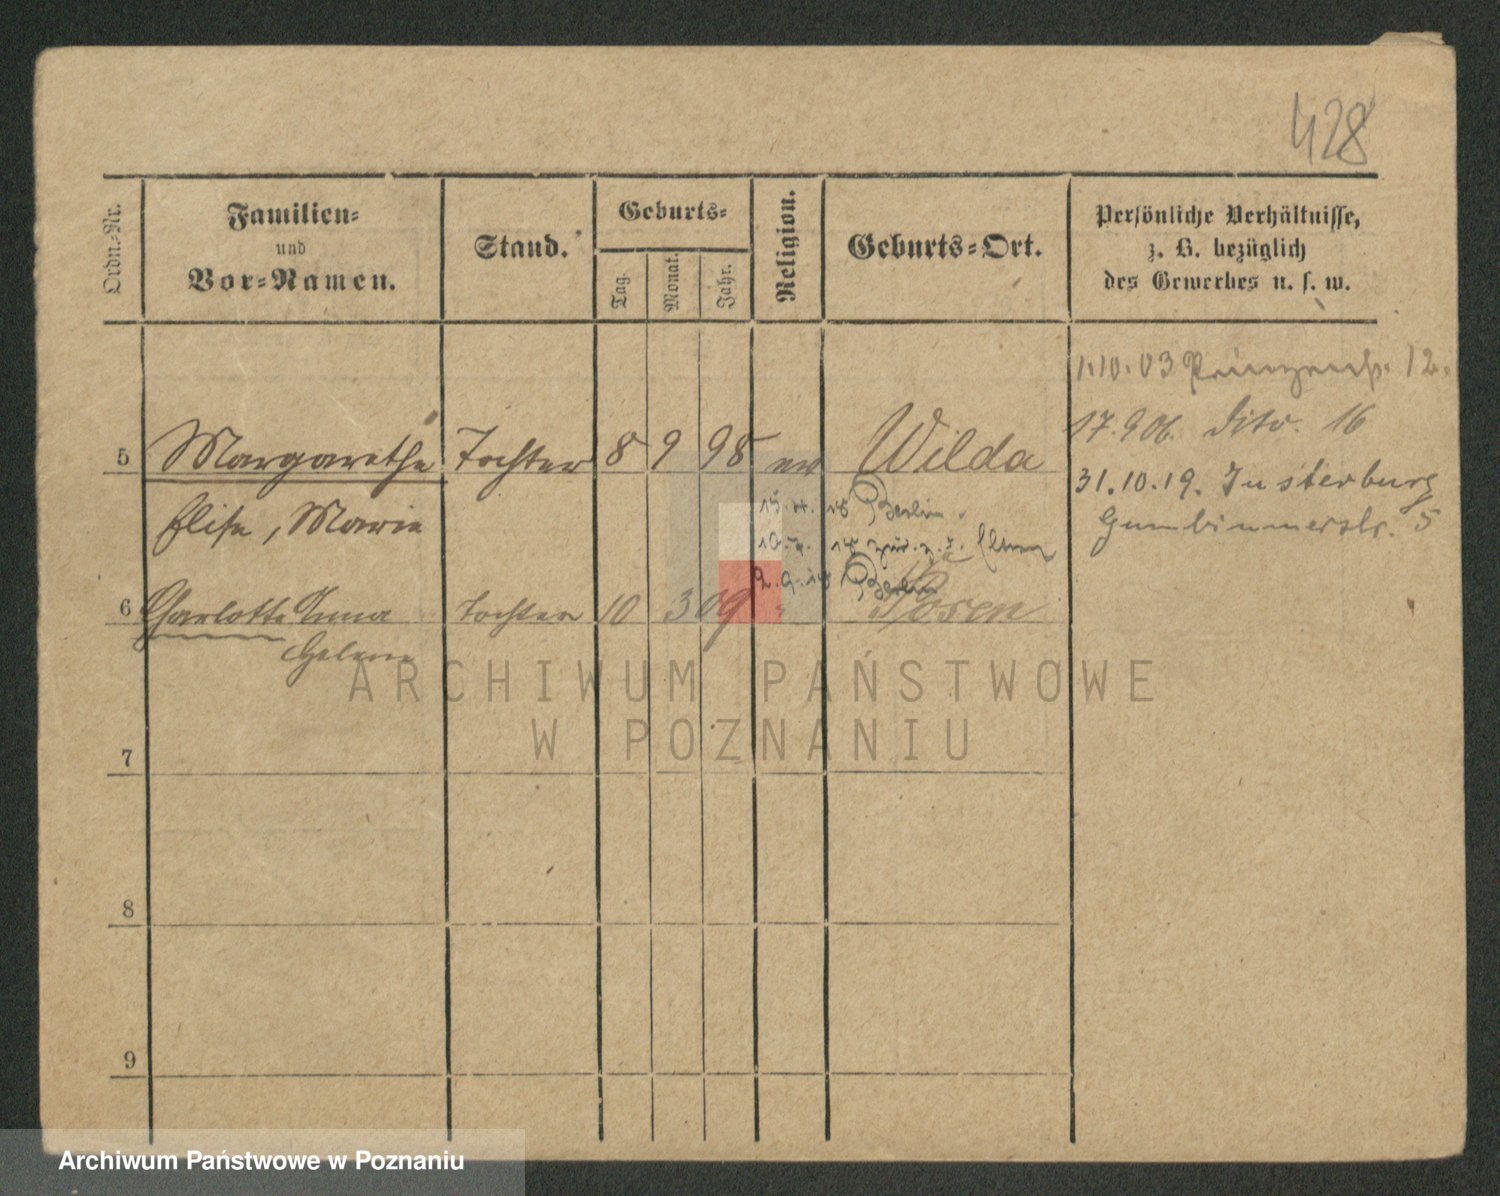 428
Ordn.-Nr.
Familien-
und
Vor-Namen.
Stand.
Geburts-
Tag.
Monat.
Jahr.
Religion.
Geburts-Ort.
Persönliche Verhältnisse,
z. B. bezüglich
des Gewerbes u. s. w.
1.10.03 Prinzenstr. 12.
17.9.06. dito. 16
5 Margarethe Tochter 8 9 98 ev Wilda
31.10.19. Insterburg
Gumbinnerstr. 5
Elise, Marie
15.4.18 Berlin.
10.7.18 zur. z. d. Eltern
2.9.18 Berlin
6 Charlotte Anna Tochter 10 3 09 " Posen
Helene
ARCHIWUM PAŃSTWOWE
W POZNANIU
7
8
9
Archiwum Państwowe w Poznaniu